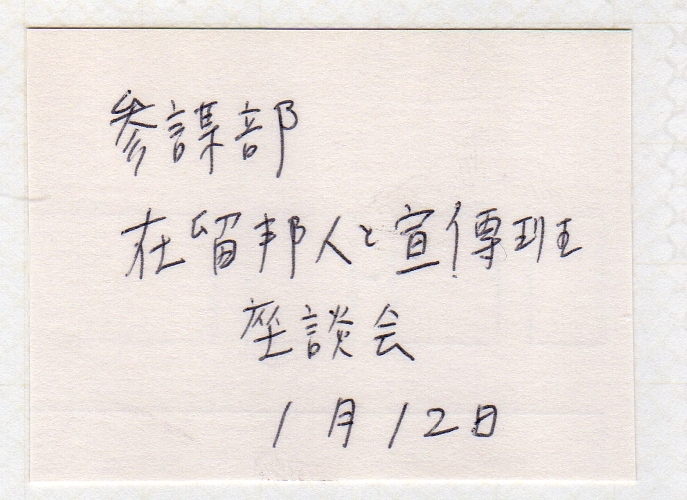 参謀部
在留邦人と宣傳班
座談会
1月12日